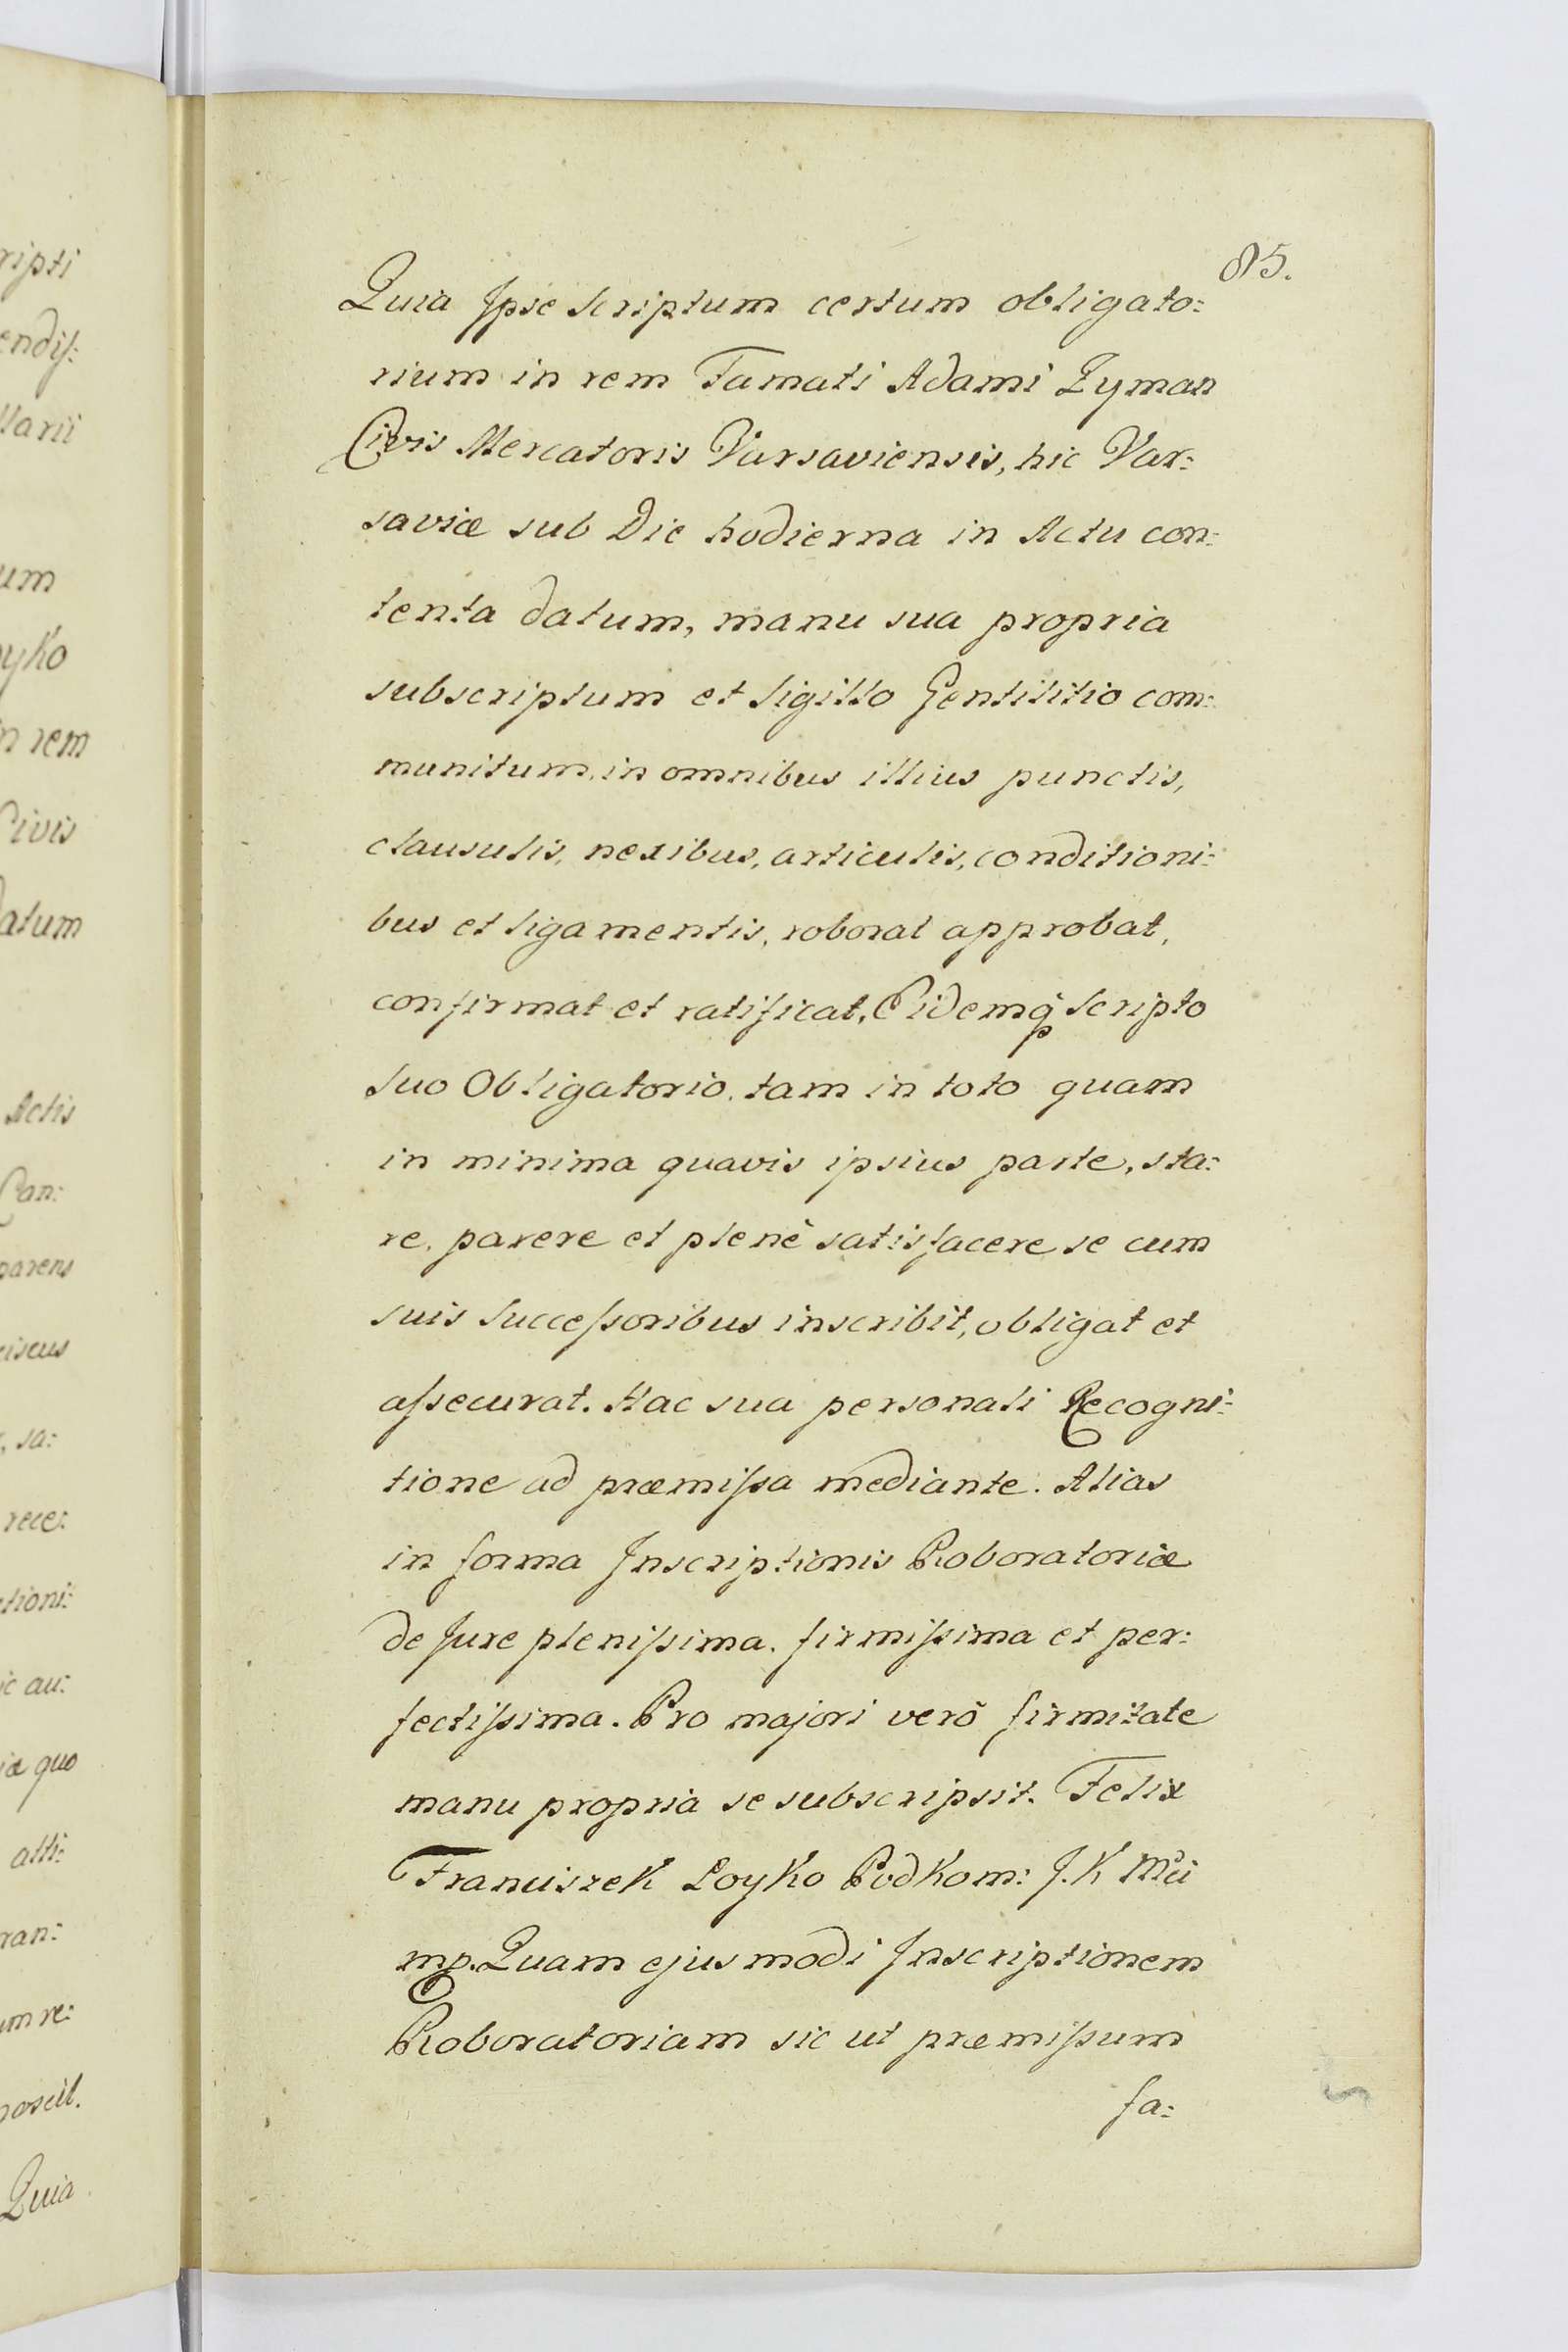 85.
Quia Ipse Scriptum certum obligato:
rium in rem Famati Adami Zyman
Civis Mercatoris Varsaviensis, hic Var:
saviæ sub Die hodierna in Actu con:
tenta datum, manu sua propria
subscriptum et Sigillo Gentilitio com:
munitum, in omnibus illius punctis,
clausulis, nexibus, articulis, conditioni:
bus et ligamentis, roborat approbat,
confirmat et ratificat, Eidemq́ Scripto
suo Obligatorio, tam in toto quam
in minima quavis ipsius parte, sta:
re, parere et plenè satisfacere se cum
suis Succeſsoribus inscribit, obligat et
aſsecurat. Hac sua personali Recogni:
tione ad præmiſsa mediante. Alias
in forma Inscriptionis Roboratoriæ
de Jure pleniſsima, firmiſsima et per:
fectiſsima. Pro majori verò firmitate
manu propria se subscripsit. Felix
Franciszek Loyko Podkom: J. K Mci
mp. Quam ejusmodi Inscriptionem
Roboratoriam sic ut præmiſsum
fa:
ripti
endiſ:
llarii
um
oyko
n rem
Civis
datum
Actis
Can:
parens
ciscus
, sa:
rece:
tioni:
ic au:
iæ quo
atti:
ran:
um re:
Quia